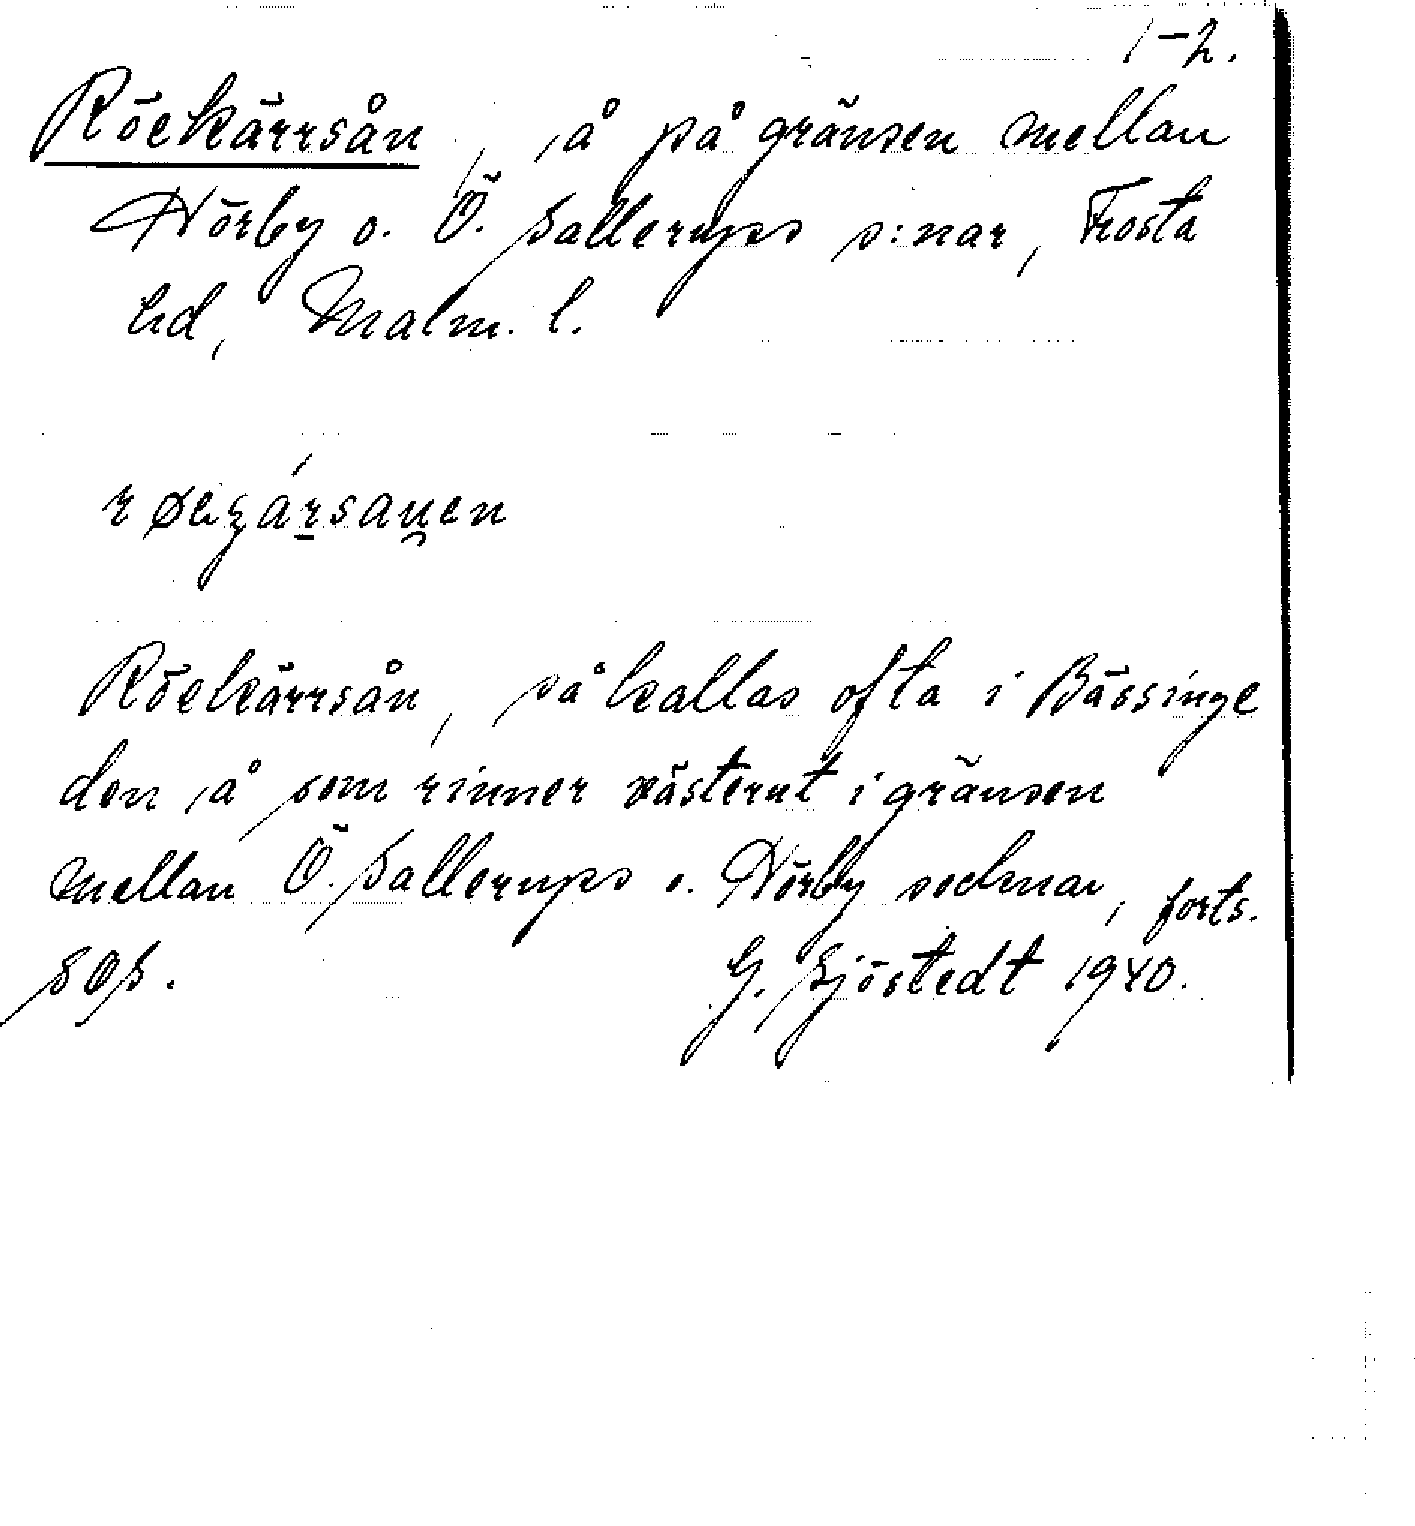 1-2.
Röekärrsån, å på gränsen mellan
Hörby o. Ö. Sallerups s:nar, Frosta
hd, Malm. l.
Röekärrsån, så kallas ofta i Bässinge
den å som rinner västerut i gränsen
mellan Ö. Sallerups o. Hörby socknar, forts.
SOS. G. Sjöstedt 1940.